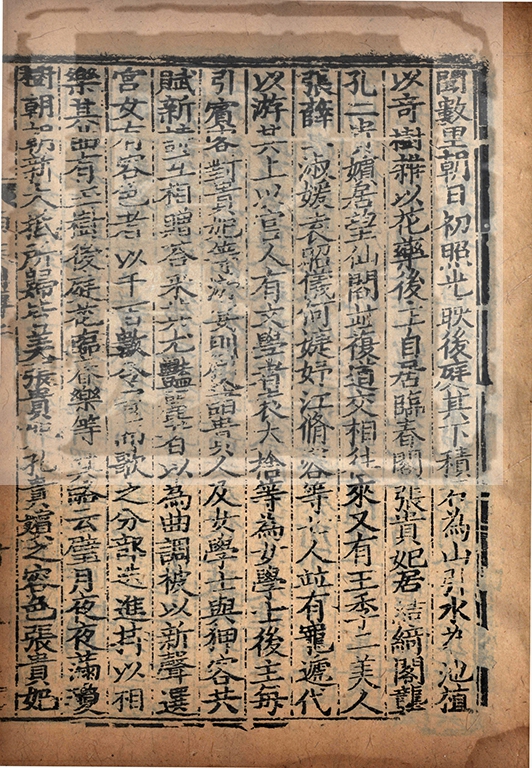 聞數里朝日初照光映後庭其下積石為山引水為池植
以奇樹雜以花藥後主自居臨春閣張貴妃居結綺閣龔
孔二貴嬪居望仙閣並複道交相往來又有王季二美人
張薛二淑媛袁昭儀何婕妤江脩容等七人並有寵遞代
以游其上以宮人有文學者袁大捨等為女學士後主每
引賓客對貴妃等游宴則使諸貴人及女學士與狎客共
賦新詩互相贈答采其尤豔麗者以為曲調被以新聲選
宮女有容色者以千百數令習而歌之分部迭進持以相
樂其曲有玉樹後庭花臨春樂等其略云璧月夜夜滿瓊
樹朝朝新大抵所歸皆美張貴妃孔貴嬪之容色張貴妃